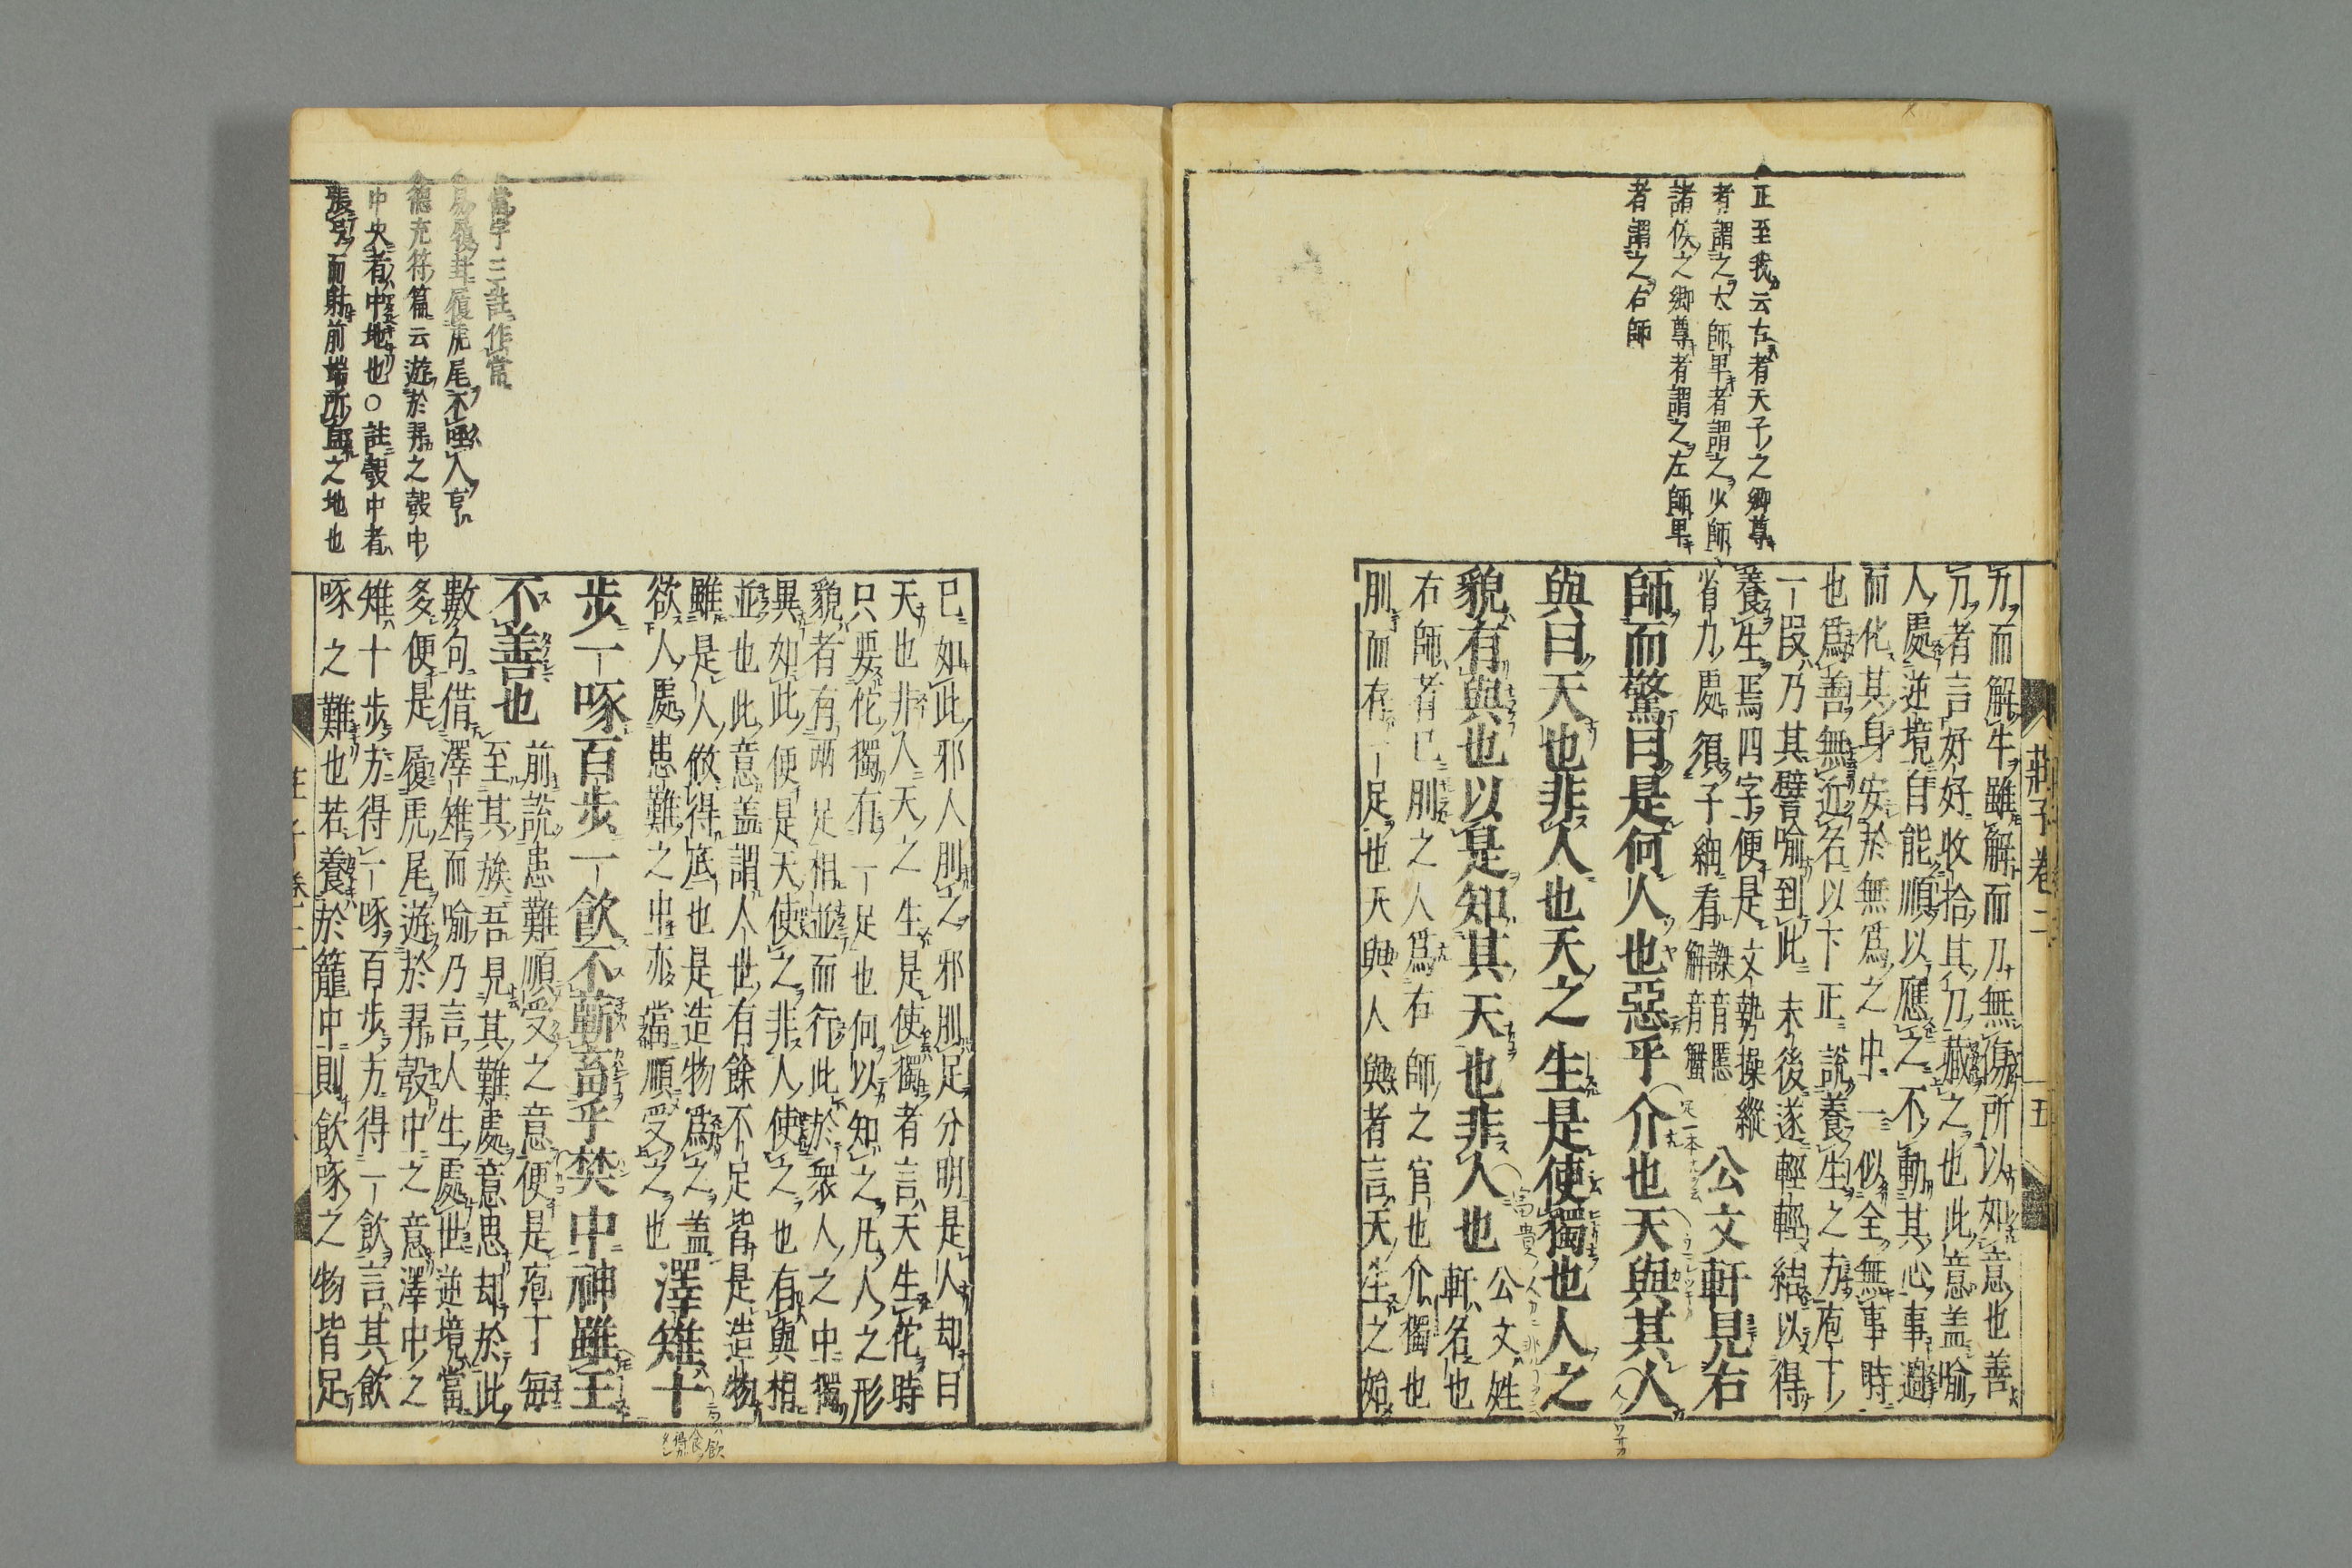 正至我云古者天子之卿尊
者謂之太師卑者謂之少師
諸侯之卿尊者謂之左師卑
者謂之右師
刀而解牛雖解而刀無傷所以如意也善
刀者言好好收拾其刀藏之也此意盖喻
人處逆境自能順以應之不動其心事過
而化其身安於無爲之中一似全無事時
也爲善無近名以下正說養生之方庖丁
一段乃其譬喻到此末後遂輕輕結以得
養生焉四字便是文勢操縱
省力處須子細看 謋音慝 解音蟹
公文軒見右
師而驚曰是何人也惡乎介也天與其人
與曰天也非人也天之生是使獨也人之
貌有與也以是知其天也非人也
公文姓
軒名也
右師者已刖之人爲右師之官也介獨也
刖而存一足也天與人與者言天生之始
莊子卷二
五
已如此邪人刖之邪刖足分明是人却曰
天也非人天之生是使獨者言天生佗時
只要佗獨有一足也何以知之凡人之形
貌者有兩足相並而行此於衆人之中獨
異如此便是天使之非人使之也有與相
並也此意盖謂人世有餘不足皆是造物
雖是人做得底也是造物爲之盖
欲人處患難之中亦當順受之也
澤雉十
步一啄百步一飲不蘄畜乎樊中神雖王
不善也
前說患難順受之意便是庖丁每
至其族吾見其難處意思却於此
數句借澤雉而喻乃言人生處世逆境當
多便是履虎尾遊於羿彀中之意澤中之
雉十步方得一啄百步方得一飲言其飲
啄之難也若養於籠中則飲啄之物皆足
當字三註作嘗
易履卦履虎尾不咥人亨
德充符篇云遊於羿之彀中
中央者中地也○註彀中者
張弓而射前端所直之地也